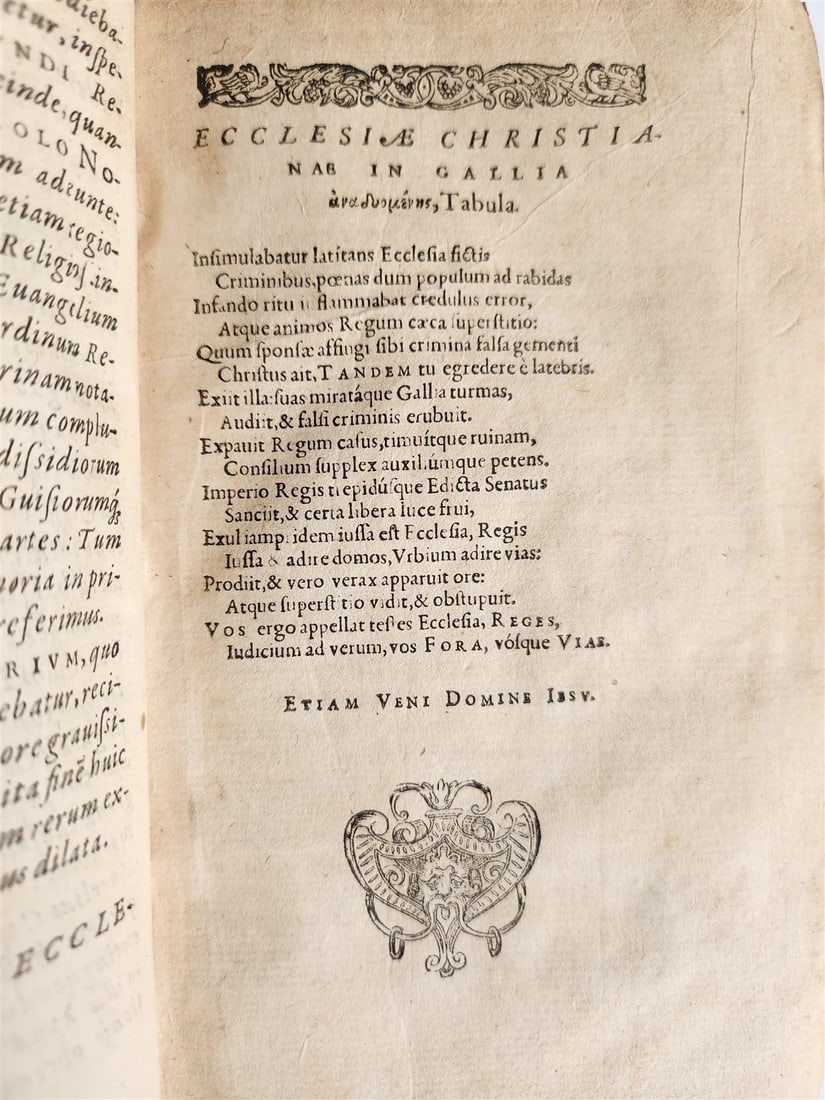 dieba-
etur, inspe-
NDI Re-
einde, quan-
OLO NO-
m adeunte:
etiam regio-
Religios. in-
Euangelium
rdinum Re-
rinam nota-
um complu-
dissidiorum
Guisiorumq́;
artes: Tum
moria in pri-
referimus.
RIVM, quo
ebatur, reci-
ore grauissi-
ita finē huic
m rerum ex-
us dilata.
ECCLE-
ECCLESIÆ CHRISTIA-
NAE IN GALLIA
ἀναδυομένης, Tabula.
Insimulabatur latitans Ecclesia fictis
Criminibus, pœnas dum populum ad rabidas
Infando ritu inflammabat credulus error,
Atque animos Regum cæca superstitio:
Quum sponsæ affingi sibi crimina falsa gementi
Christus ait, TANDEM tu egredere è latebris.
Exiit illa: suas miratáque Gallia turmas,
Audiit, & falsi criminis erubuit.
Expauit Regum casus, timuítque ruinam,
Consilium supplex auxiliúmque petens.
Imperio Regis trepidúsque Edicta Senatus
Sanciit, & certa libera luce frui,
Exul iampridem iussa est Ecclesia, Regis
Iussa & adire domos, Vrbium adire vias:
Prodiit, & vero verax apparuit ore:
Atque superstitio vidit, & obstupuit.
Vos ergo appellat testes Ecclesia, REGES,
Iudicium ad verum, vos FORA, vósque VIAS.
ETIAM VENI DOMINE IESV.